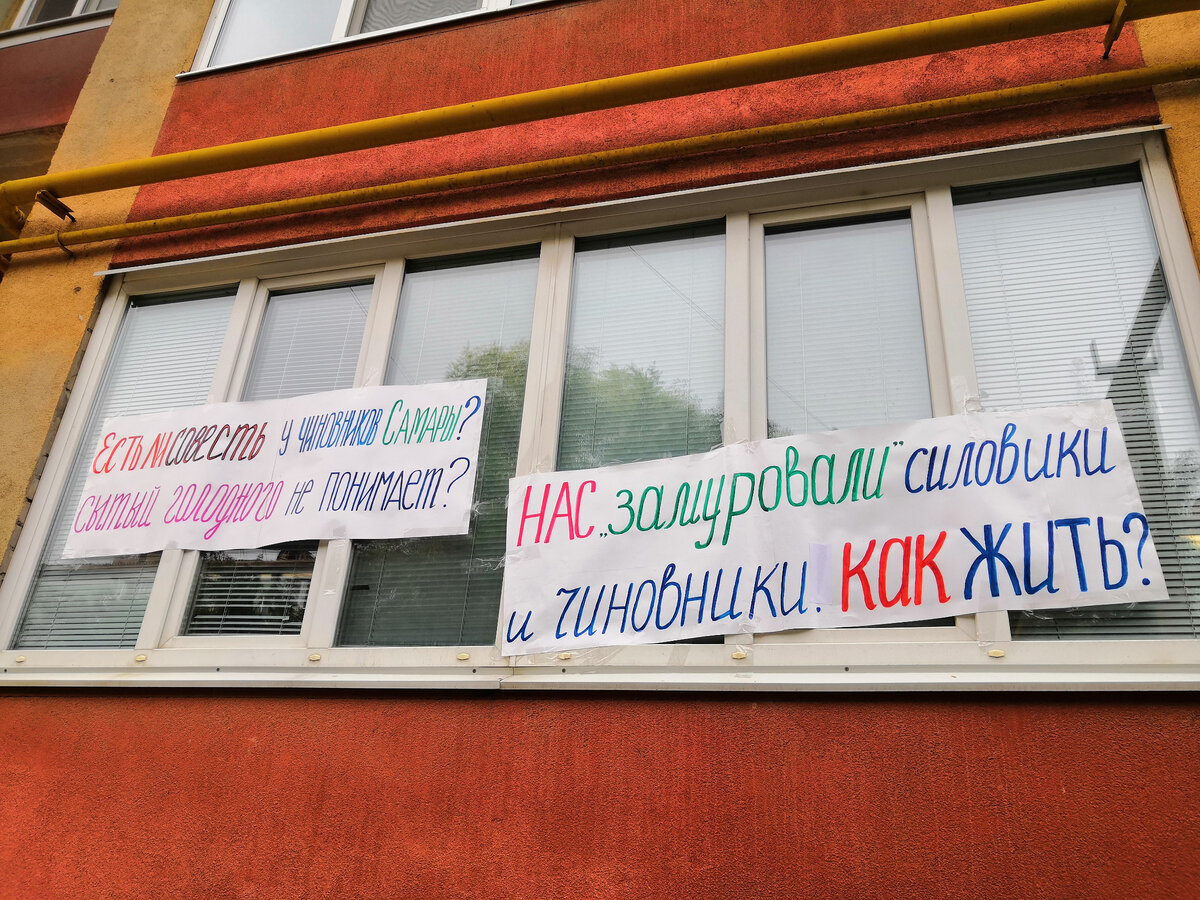 Есть ли совесть у чиновников Самары?
сытый голодного не понимает?
НАС „замуровали" силовики
и чиновники. как жить?